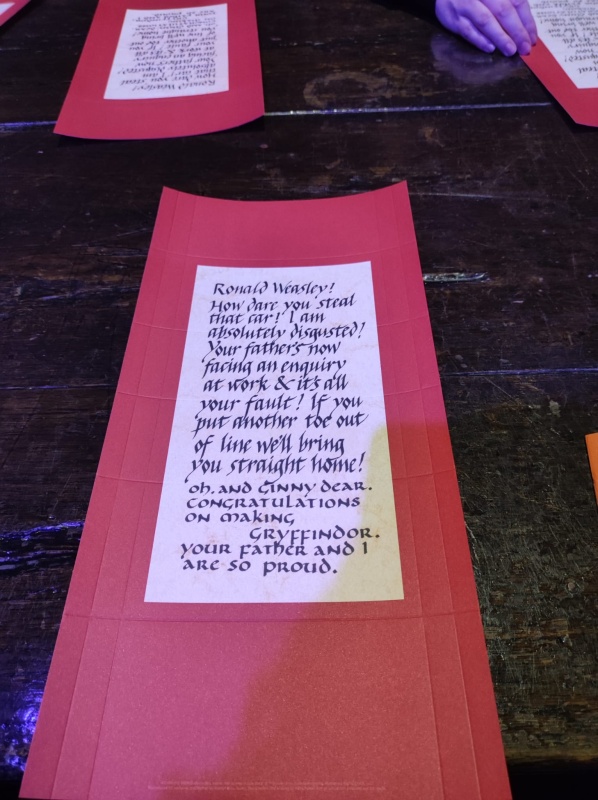 Ronald Weasley!
How dare you steal
that car! I am
absolutely disgusted!
Your father's now
facing an enquiry
at work & it's all
your fault! If you
put another toe out
of line we'll bring
you straight home!
Oh, and Ginny dear.
Congratulations
on making
Gryffindor.
Your father and I
are so proud.
Ronald Weasley!
How dare you steal
that car! I am